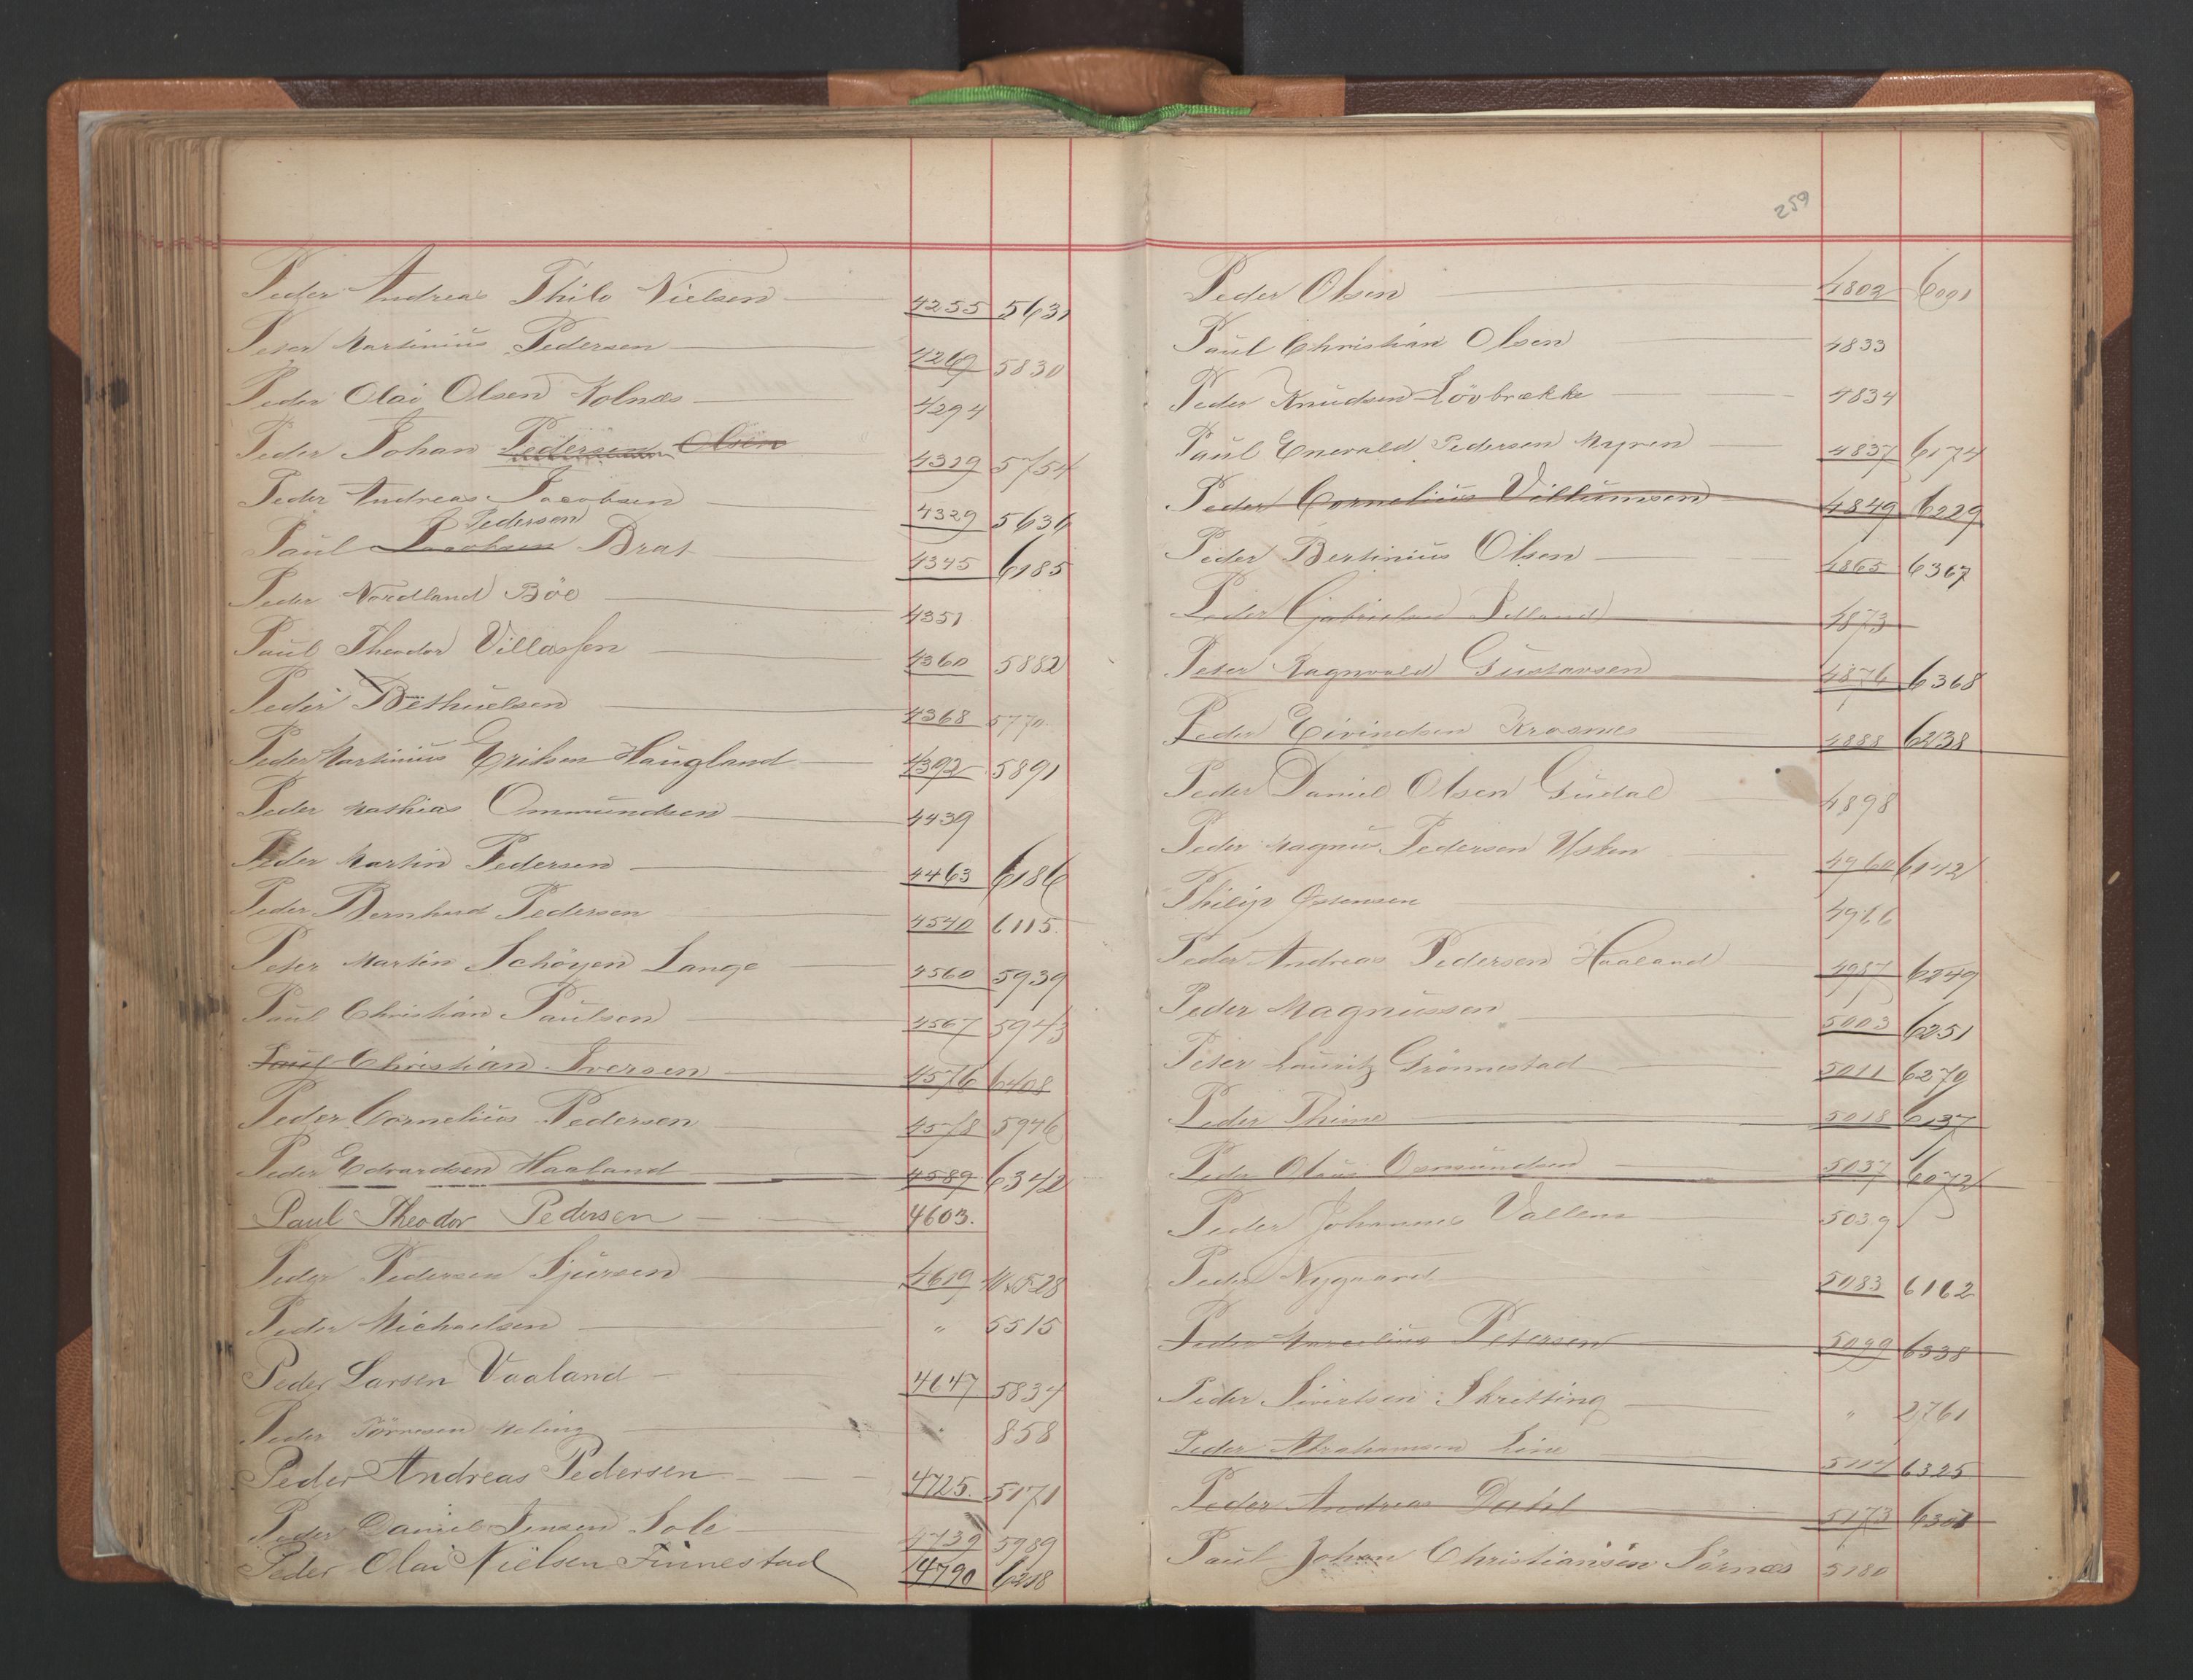 Peder Andreas Thilo Nielsen 4255 5631
Peter Martinius Pedersen 4269 5830
Peder Olai Olsen Kolnæs 4294
Peder Johan Pedersen Olsen 4319 5754
Peder Andreas Jacobsen 4329 5636
Pedersen
Paul Jacobsen Brat 4345 6185
Peder Nordland Böe 4351
Paul Theodor Villassen 4360 5882
Peder Bethuelsen 4368 5770
Peder Martinius Eriksen Haugland 4392 5891
Peder Mathias Ommundsen 4439
Peder Martin Pedersen 4463 6186
Peder Bernhard Pedersen 4540 6115
Peter Martin Schöyen Lange 4560 5939
Paul Christian Paulsen 4567 5943
Paul Christian Iversen 4576 6408
Peder Cornelius Pedersen 4578 5946
Peder Edvardsen Haaland 4589 6342
Paul Theodor Pedersen 4603.
Peder Pedersen Sjursen 4619
Peder Michaelsen " 5515
Peder Larsen Vaaland 4647 5834
Peder Törresen Meling 858
Peder Andreas Pedersen 4725. 5171
Peder Daniel Jensen Sole 4739 5989
Peder Olai Nielsen Finnestad 4790 6218
259
Peder Olsen 4802 6091
Paul Christian Olsen 4833
Peder Knudsen Lövbrække 4834
Paul Enevald Pedersen Myren 4837 6174
Peder Cornelius Villumsen 4849 6229
Peder Bertinius Olsen 4865 6367
Peder Gabrielsen 4873
Peter Ragnvald Gustavsen 4876 6368
Peder Eivindsen 4888 6238
Peder Daniel Olsen Gudal 4898
Peder Magnus Pedersen 6142
Philip Östensen
Peder Andreas Pedersen Haaland 4987 6249
Peder Magnussen 5003 6251
Peter Lauritz Grönnestad 5011 6270
Peder Thime 5018 6137
Peder Olaus Osmundsen 5037 6072
Peder Johannes 5039
Peder Nygaard 5083 6162
Peder Marcelius Petersen 5099 6338
Peder Sivertsen Skretting " 2761
Peder Abrahamsen Line 6325
Peder Andreas Dahl 5173
Paul Johan Christiansen Sörnæs 5180